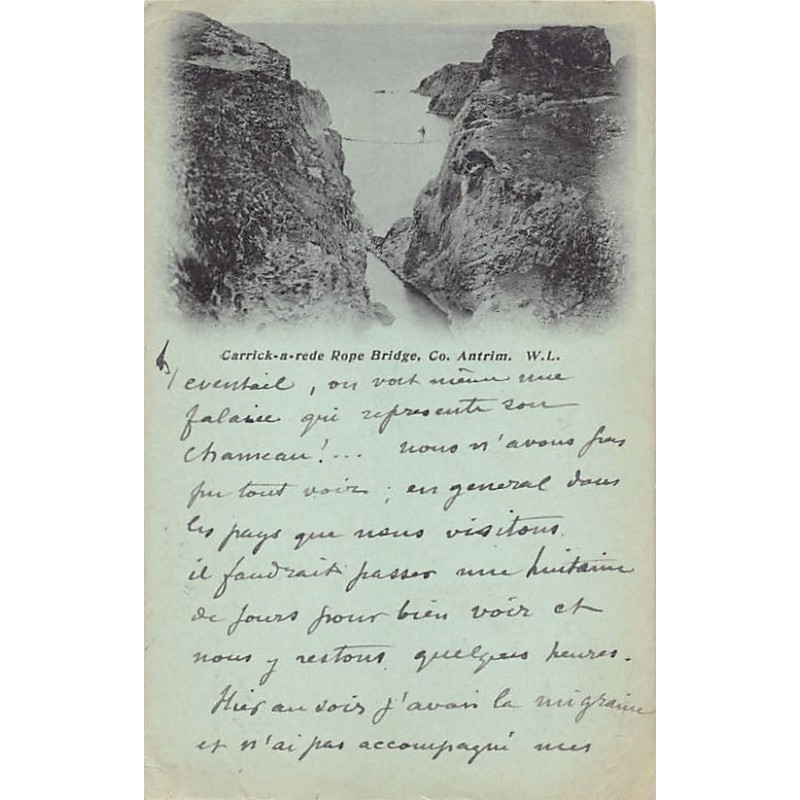 Carrick-a-rede Rope Bridge, Co. Antrim. W.L.
eventail, on voit même une
falaise qui represente son
chameau!... nous n'avons pas
pu tout voir; en general dans
les pays que nous visitons
il faudrait passer une huitaine
de jours pour bien voir et
nous y restons quelques heures.
Hier au soir j'avais la migraine
et n'ai pas accompagné mes